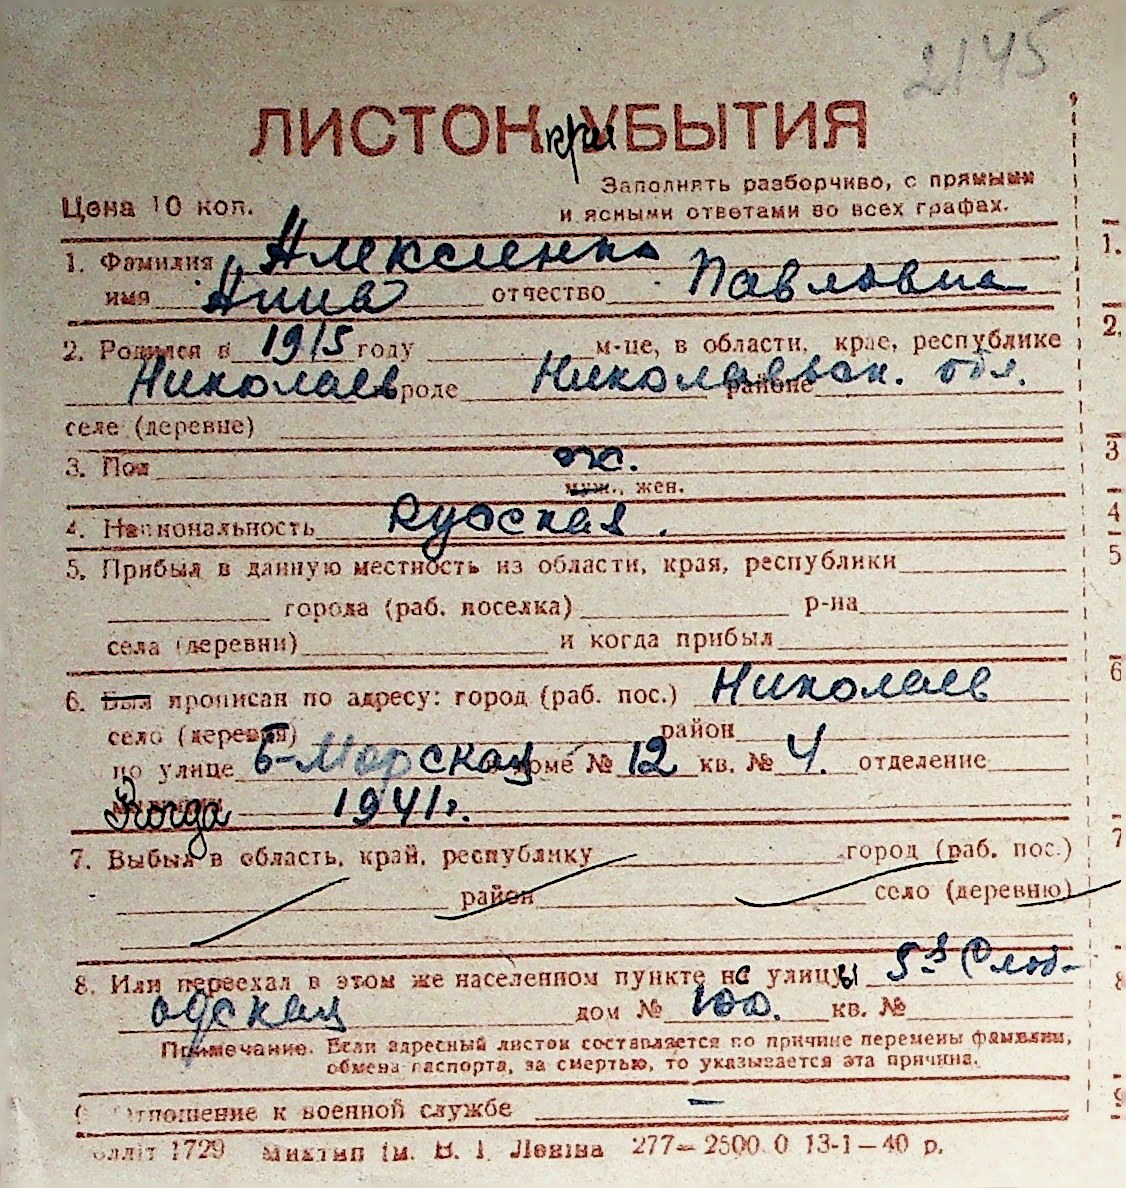 2145
ЛИСТОК при УБЫТИЯ
Цена 10 коп.
Заполнять разборчиво, с прямыми
и ясными ответами во всех графах.
1. Фамилия Алексиенко
имя Анна отчество Павловна
2. Родился в 1915 году м-це, в области, крае, республике
Николаев городе Николаевск. обл. районе
селе (деревне)
3. Пол ж.
муж., жен.
4. Национальность Русская.
5. Прибыл в данную местность из области, края, республики
города (раб. поселка) р-на
села (деревни) и когда прибыл
6. Был прописан по адресу: город (раб. пос.) Николаев
село (деревня) район
по улице Б-Морская доме № 12 кв. № 4. отделение
Когда 1941 г.
7. Выбыл в область, край, республику город (раб. пос.)
район село (деревню)
8. Или переехал в этом же населенном пункте на улицу 5я Слоб-
одская дом № 100. кв. №
Примечание. Если адресный листок составляется по причине перемены фамилии,
обмена паспорта, за смертью, то указывается эта причина.
9. Отношение к военной службе —
лліт 1729 Миктип ім. В. І. Леніна 277—2500.0 13-1—40 р.
1.
2.
3
4
5
6
7
8
9